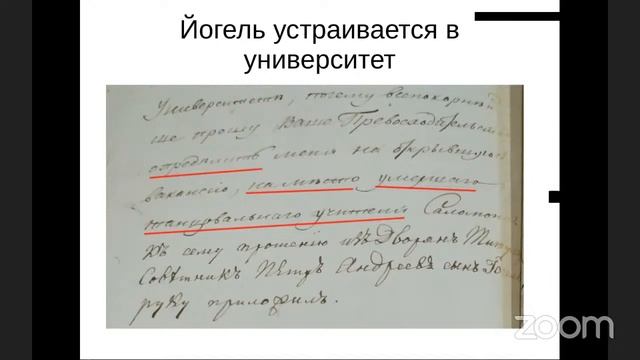 Йогель устраивается в
университет
Университета, почему всепокорнѣй
ше прошу Ваше Превосходительство
опредѣлить меня на открывшуюся
вакансию, на мѣсто умершаго
танцовальнаго учителя
Къ сему прошению изъ Дворянъ
Совѣтникъ Петръ Андреевъ сынъ
руку приложилъ.
zoom